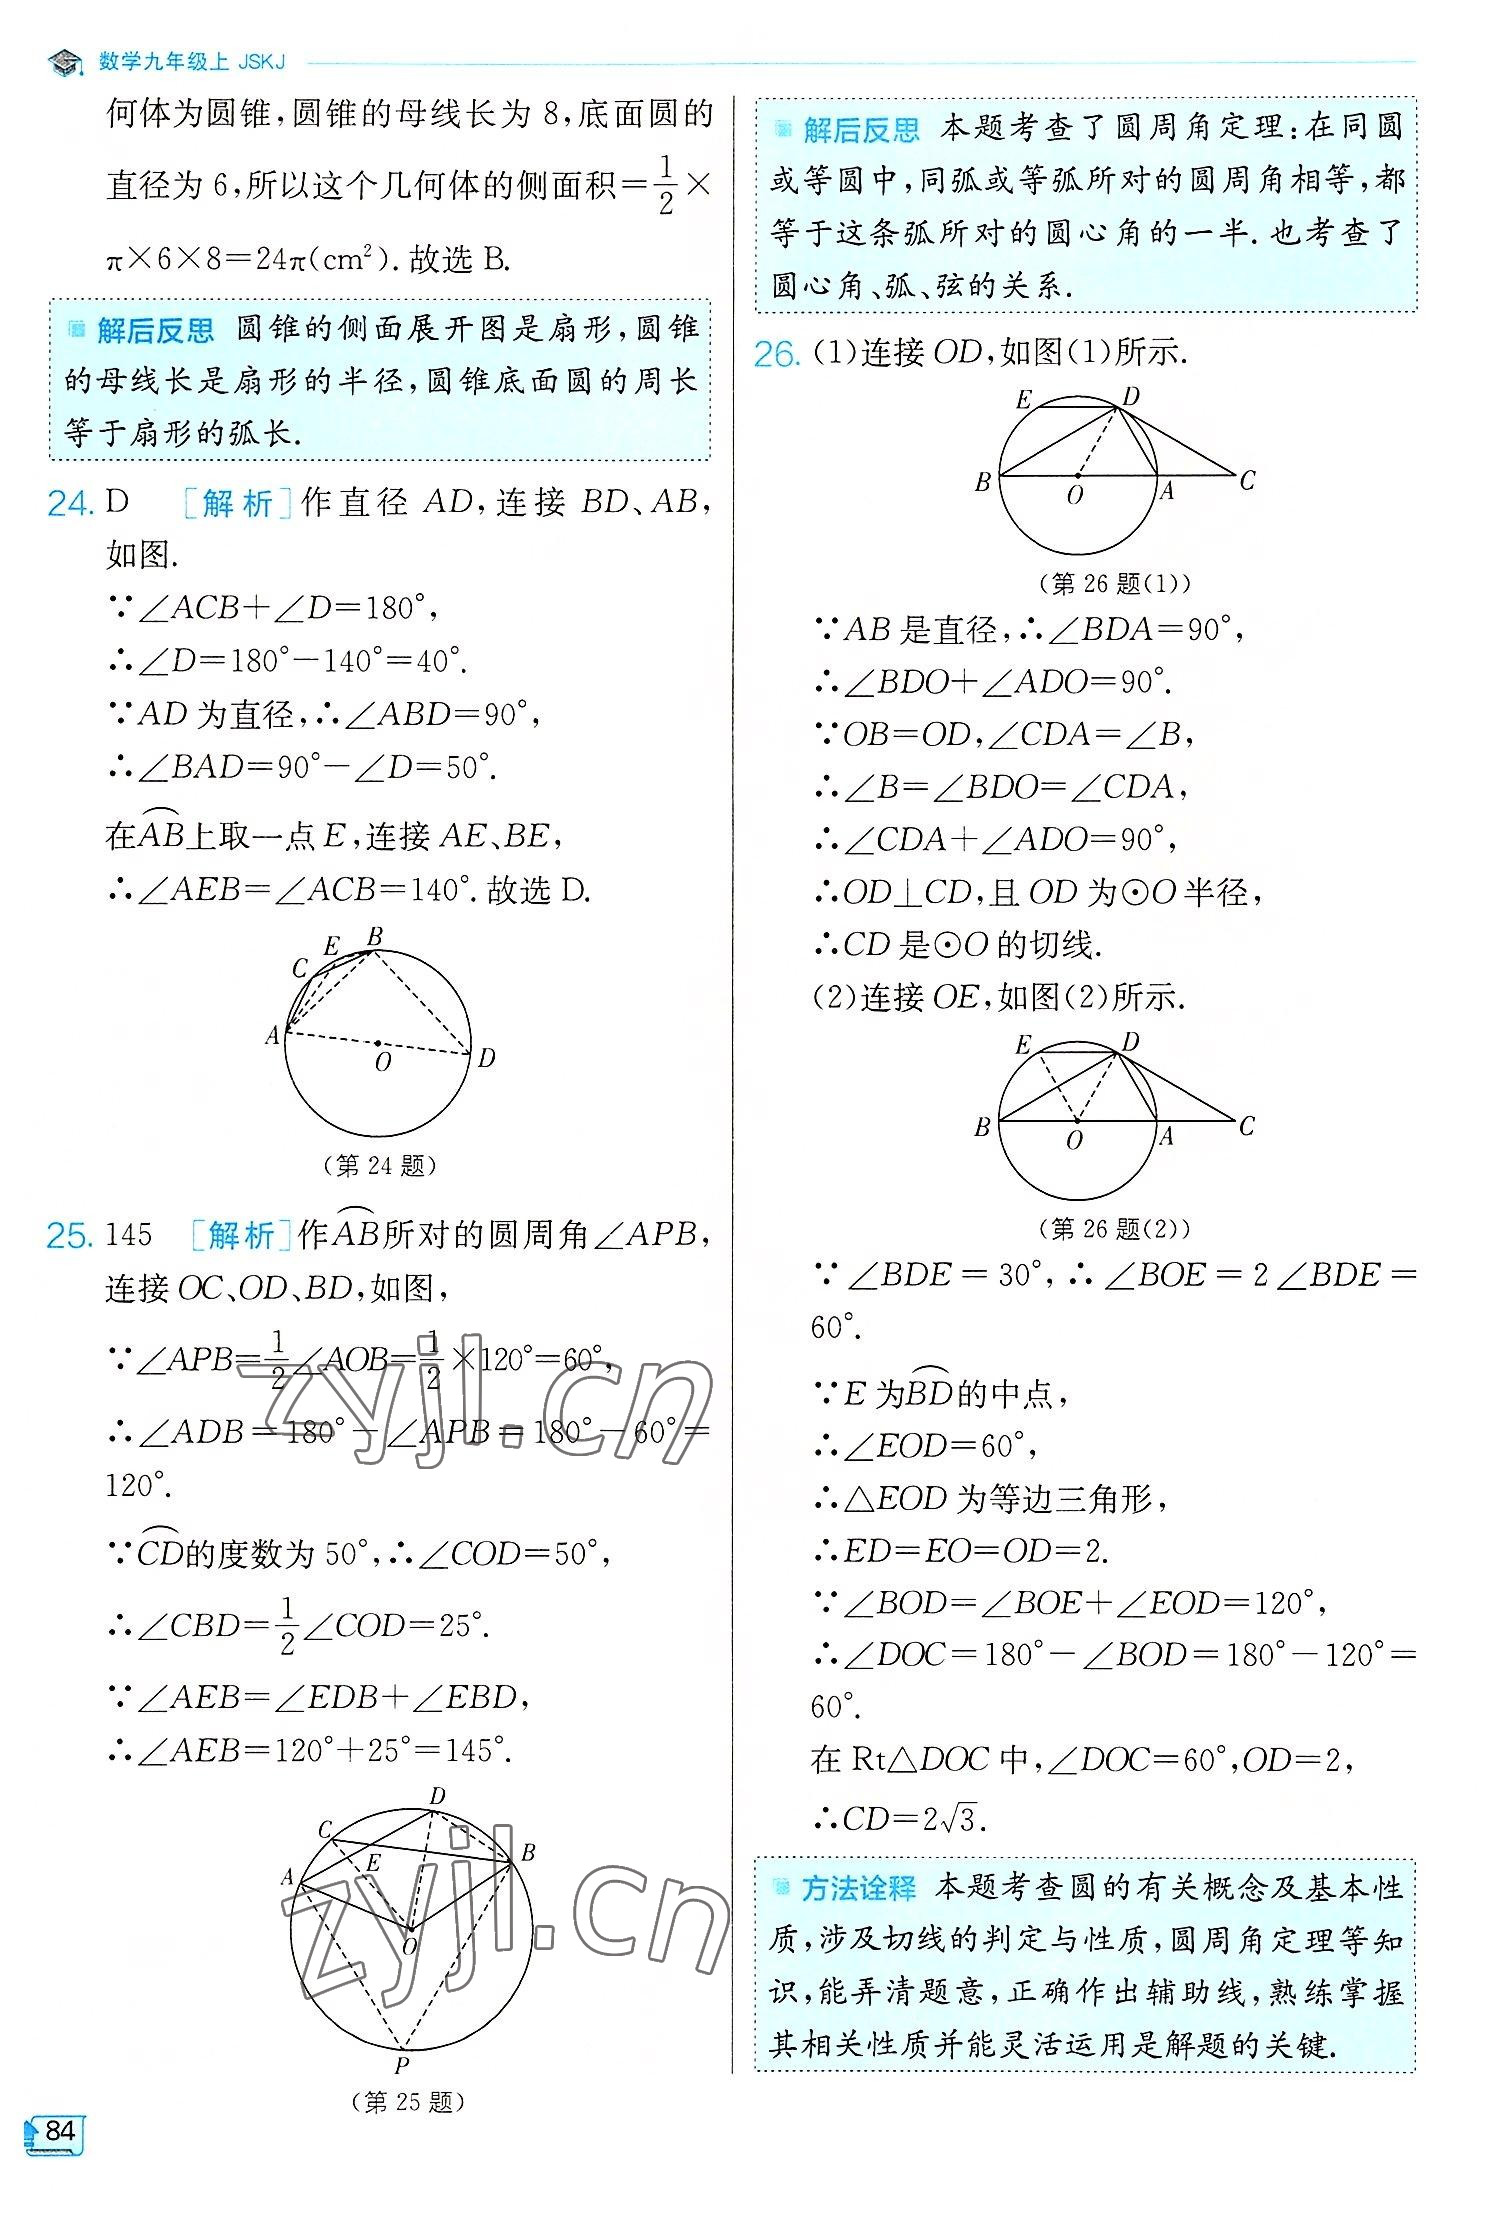 数学九年级上 JSKJ
何体为圆锥,圆锥的母线长为 8,底面圆的
直径为 6,所以这个几何体的侧面积=1/2×
π×6×8=24π(cm²).故选 B.
解后反思 圆锥的侧面展开图是扇形,圆锥
的母线长是扇形的半径,圆锥底面圆的周长
等于扇形的弧长.
24. D [解析]作直径 AD,连接 BD、AB,
如图.
∵∠ACB+∠D=180°,
∴∠D=180°-140°=40°.
∵AD 为直径,∴∠ABD=90°,
∴∠BAD=90°-∠D=50°.
在⌒AB上取一点 E,连接 AE、BE,
∴∠AEB=∠ACB=140°.故选 D.
E B
C
A
O D
(第 24 题)
25. 145 [解析]作⌒AB所对的圆周角∠APB,
连接 OC、OD、BD,如图,
∵∠APB=1/2∠AOB=1/2×120°=60°,
∴∠ADB=180°-∠APB=180°-60°=
120°.
∵⌒CD的度数为 50°,∴∠COD=50°,
∴∠CBD=1/2∠COD=25°.
∵∠AEB=∠EDB+∠EBD,
∴∠AEB=120°+25°=145°.
D
C
E B
A
O
P
(第 25 题)
84
解后反思 本题考查了圆周角定理:在同圆
或等圆中,同弧或等弧所对的圆周角相等,都
等于这条弧所对的圆心角的一半.也考查了
圆心角、弧、弦的关系.
26. (1)连接 OD,如图(1)所示.
E D
B O A C
(第 26 题(1))
∵AB 是直径,∴∠BDA=90°,
∴∠BDO+∠ADO=90°.
∵OB=OD,∠CDA=∠B,
∴∠B=∠BDO=∠CDA,
∴∠CDA+∠ADO=90°,
∴OD⊥CD,且 OD 为⊙O 半径,
∴CD 是⊙O 的切线.
(2)连接 OE,如图(2)所示.
E D
B O A C
(第 26 题(2))
∵∠BDE=30°,∴∠BOE=2∠BDE=
60°.
∵E 为⌒BD的中点,
∴∠EOD=60°,
∴△EOD 为等边三角形,
∴ED=EO=OD=2.
∵∠BOD=∠BOE+∠EOD=120°,
∴∠DOC=180°-∠BOD=180°-120°=
60°.
在 Rt△DOC 中,∠DOC=60°,OD=2,
∴CD=2√3.
方法诠释 本题考查圆的有关概念及基本性
质,涉及切线的判定与性质,圆周角定理等知
识,能弄清题意,正确作出辅助线,熟练掌握
其相关性质并能灵活运用是解题的关键.
zyjl.cn
zyjl.cn